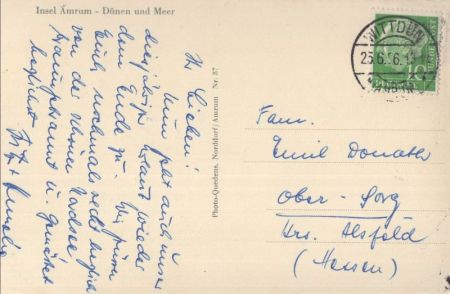 Insel Amrum - Dünen und Meer
Ihr Lieben!
Nun geht auch unser
diesjähriger Urlaub wieder
dem Ende zu. Wir grüßen
Euch nochmals recht herzlich
von der schönen Nordsee
u.
herzlichst
Fritz +
Photo-Quedens, Norddorf/Amrum Nr. 87
WITTDÜN
10
Fam.
Emil Donath
Ober-Sorg
Krs. Alsfeld
(Hessen)